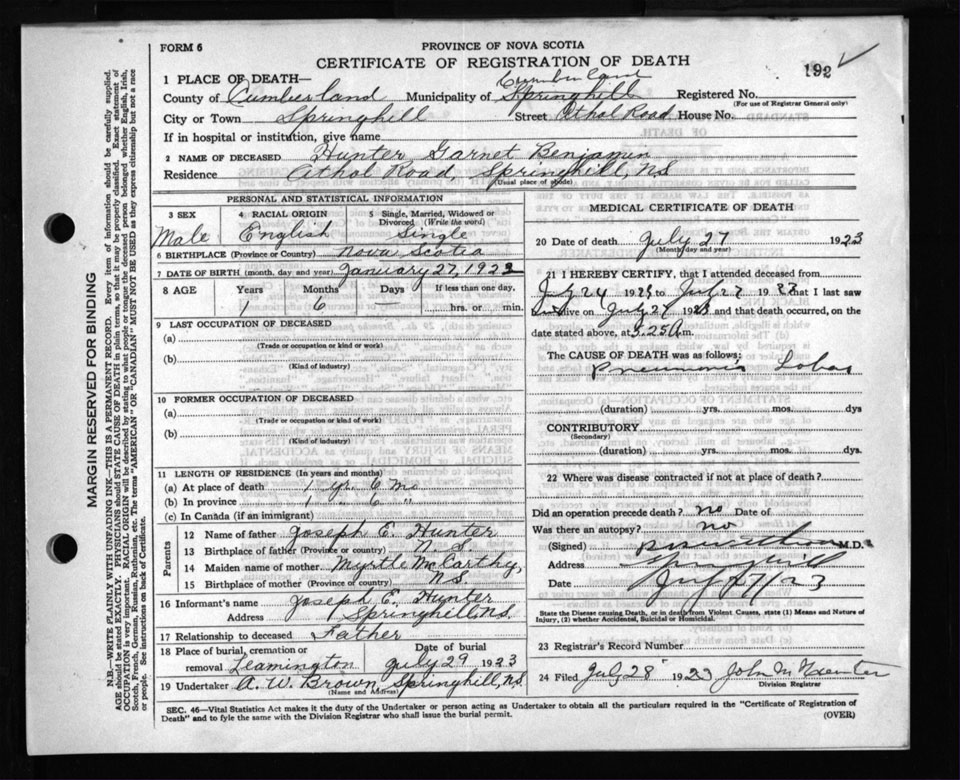 FORM 6
PROVINCE OF NOVA SCOTIA
CERTIFICATE OF REGISTRATION OF DEATH
192 ✓
1 PLACE OF DEATH—
Cumberland
County of Cumberland Municipality of Springhill Registered No.
(For use of Registrar General only)
City or Town Springhill Street Athol Road House No.
If in hospital or institution, give name
2 NAME OF DECEASED Hunter Garnet Benjamin
Residence Athol Road, Springhill, NS
(Usual place of abode)
PERSONAL AND STATISTICAL INFORMATION
3 SEX 4 RACIAL ORIGIN 5 Single, Married, Widowed or Divorced (Write the word)
Male English Single
6 BIRTHPLACE (Province or Country) Nova Scotia
7 DATE OF BIRTH (month, day and year) January 27, 1922
8 AGE Years Months Days If less than one day,
1 6 — hrs. or min.
9 LAST OCCUPATION OF DECEASED
(a)
(Trade or occupation or kind or work)
(b)
(Kind of industry)
10 FORMER OCCUPATION OF DECEASED
(a)
(Trade or occupation or kind or work)
(b)
(Kind of industry)
11 LENGTH OF RESIDENCE (In years and months)
(a) At place of death 1 yr. 6 mo.
(b) In province 1 " 6 "
(c) In Canada (if an immigrant)
Parents
12 Name of father Joseph E. Hunter
13 Birthplace of father (Province or country) N.S.
14 Maiden name of mother Myrtle McCarthy,
15 Birthplace of mother (Province or country) NS.
16 Informant's name Joseph E. Hunter
Address Springhill, NS.
17 Relationship to deceased Father
18 Place of burial, cremation or removal Leamington Date of burial July 29 1923
19 Undertaker A. W. Brown Springhill, N.S.
(Name and Address)
MEDICAL CERTIFICATE OF DEATH
20 Date of death July 27 1923
(Month, day and year)
21 I HEREBY CERTIFY, that I attended deceased from
July 24 1923 to July 27 1923 that I last saw
alive on July 27 1923 and that death occurred, on the
date stated above, at 5.25 a m.
The CAUSE OF DEATH was as follows;
Pneumonia Lobar
(duration) yrs. mos. dys
CONTRIBUTORY
(Secondary)
(duration) yrs. mos. dys.
22 Where was disease contracted if not at place of death?
Did an operation precede death? no Date of
Was there an autopsy? no
(Signed) M.D.
Address Springhill
Date July 27/23
State the Disease causing Death, or in death from Violent Causes, state (1) Means and Nature of
Injury, (2) whether Accidental, Suicidal or Homicidal.
23 Registrar's Record Number
24 Filed July 28 1923 John
Division Registrar
SEC. 46—Vital Statistics Act makes it the duty of the Undertaker or person acting as Undertaker to obtain all the particulars required in the "Certificate of Registration of
Death" and to fyle the same with the Division Registrar who shall issue the burial permit.
(OVER)
MARGIN RESERVED FOR BINDING
N.B.—WRITE PLAINLY WITH UNFADING INK—THIS IS A PERMANENT RECORD. Every item of information should be carefully supplied.
AGE should be stated EXACTLY. PHYSICIANS should STATE CAUSE OF DEATH in plain terms, so that it may be properly classified. Exact statement of
OCCUPATION is very important. RACIAL ORIGIN will be described by stating to what people or tongue the deceased person belonged whether English, Irish,
Scotch, French, German, Russian, Ruthenian, etc. The terms "AMERICAN" OR "CANADIAN" MUST NOT BE USED as they express citizenship but not a race
or people. See instructions on back of Certificate.